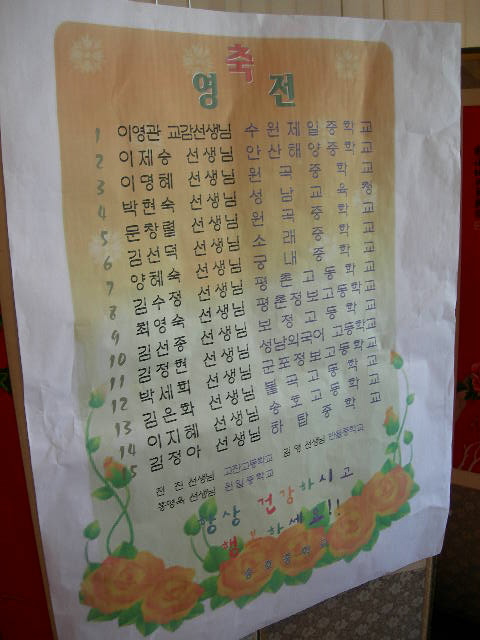 축
영 전
1 이영관 교감선생님 수원제일중학교
2 이제승 선생님 안산해양중학교
3 이명혜 선생님 원곡중학교
4 박현숙 선생님 성남교육청
5 문창렬 선생님 원곡중학교
6 김선덕 선생님 소래중학교
7 양혜숙 선생님 궁내중학교
8 김수정 선생님 평촌고등학교
9 최영숙 선생님 평촌정보고등학교
10 김선종 선생님 보정고등학교
11 김정현 선생님 성남외국어고등학교
12 박세희 선생님 군포정보고등학교
13 김은화 선생님 불곡고등학교
14 이지혜 선생님 송호고등학교
15 김정아 선생님 하탑중학교
전진 선생님 고잔고등학교 김영 선생님 반월중학교
홍명옥 선생님 원일중학교
항상 건강하시고
행복하세요!!
중학교